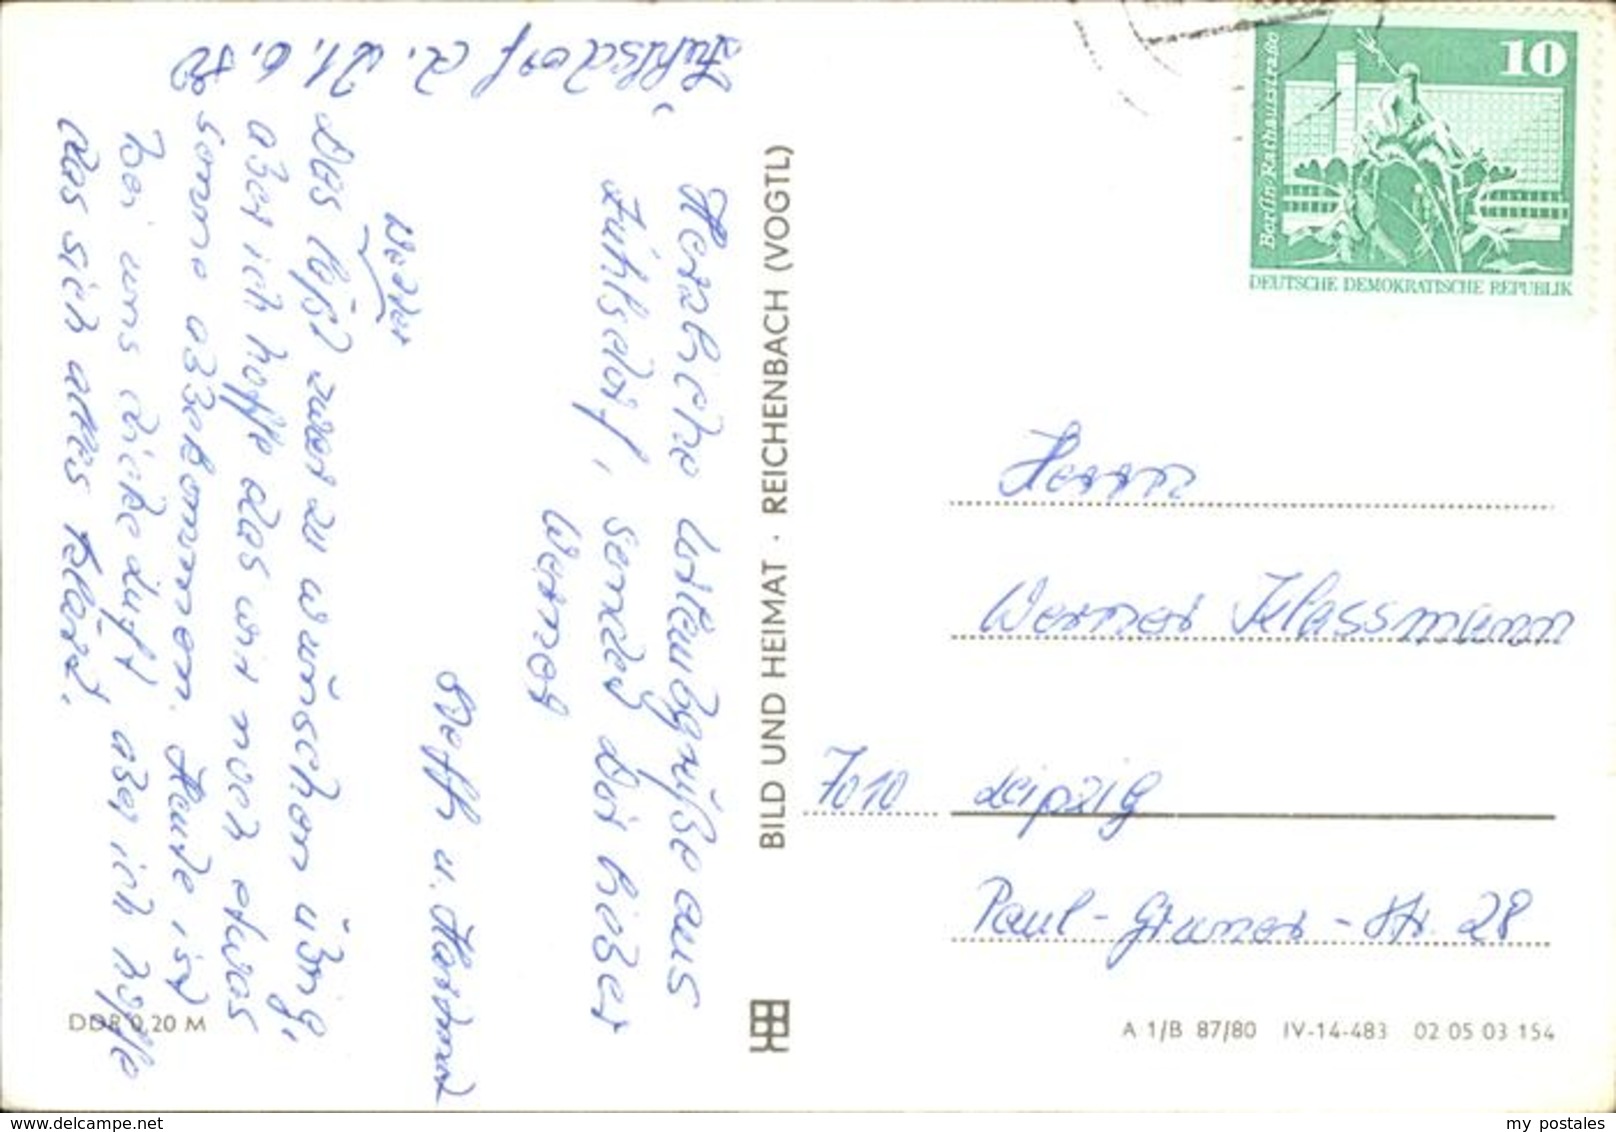 Zühlsdorf d. 21.6.80
Herzliche Urlaubgrüße aus
Zühlsdorf, sendet Dir lieber
Werner
Steffi u. Hartmut
Wetter
Das läßt zwar zu wünschen übrig,
aber ich hoffe das wir noch etwas
Sonne abbekommen. Heute ist
bei uns dicke Luft, aber ich hoffe
das sich alles klärt.
DDR 0,20 M
BILD UND HEIMAT · REICHENBACH (VOGTL)
Berlin Rathausstraße
10
DEUTSCHE DEMOKRATISCHE REPUBLIK
Herrn
Werner Klassmann
7010 Leipzig
Paul-Gruner-Str. 28
A 1/B 87/80 IV-14-483 02 05 03 154
www.delcampe.net
my_postales